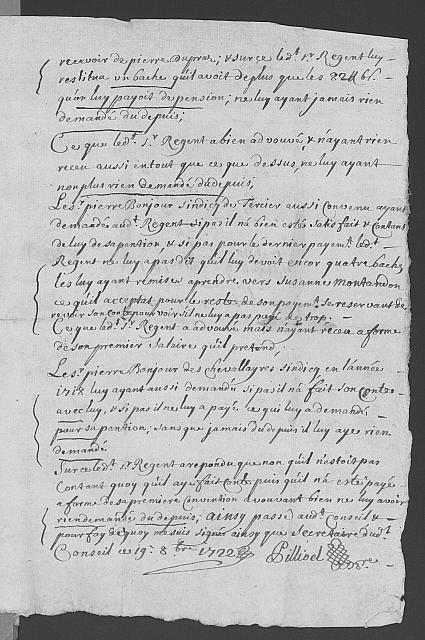 recevoir de pierre Dupraz; & surce ledt. Sr. Regent luy
restitua un bache quil avoit deplus que les 82
quon luy payoit de pension; ne luy ayant jamais rien
demandé du depuis;
Ce que ledt. Sr. Regent a bien advoué, & n'ayant rien
receu aussi entout que ce que dessus, ne luy ayant
non plus rien demandé dudepuis,
Le Sr. pierre Bonjour sindicq de Tercier aussi Convenu ayant
demandé audt. Regent sipasil na bien esté satisfait & Contant
de luy desapention, & si pas pour le dernier payent. ledt.
Regent ne luy a pas dit quil luy devoit encor quatre bache
les luy ayant remis aprendre vers Susanne Montandon
ce quil acceptat pour le reste de son payemt. se reservant de
revoir son Conte pour voir sil ne luy a pas payé de trop.
Ce que ledt. Sr. Regent a advoué mais nayant receu a forme
de son premier salaire quil pretend,
Le Sr. pierre Bonjour des Chevallayres sindicq en lannée
1718 luy ayant aussi demandé si pas il na fait son Conte
avec luy, & si pas il ne luy a payé ce qui luy a demandé
pour sa pention; sans que jamais du depuis il luy aye rien
demandé
Surce ledt. Sr. Regent a repondu que non quil n'estoit pas
Contant quoy quil aye fait Conte puis quil na esté payé
a forme de sa premiere Convention avouvant bien ne luy avoir
rien demandé du depuis; ainsy passé audt. Conseil &
pour foy de quoy me suis signé ainsy que secretaire dudt.
Conseil ce 19e. 8bre 1722 Pilliod